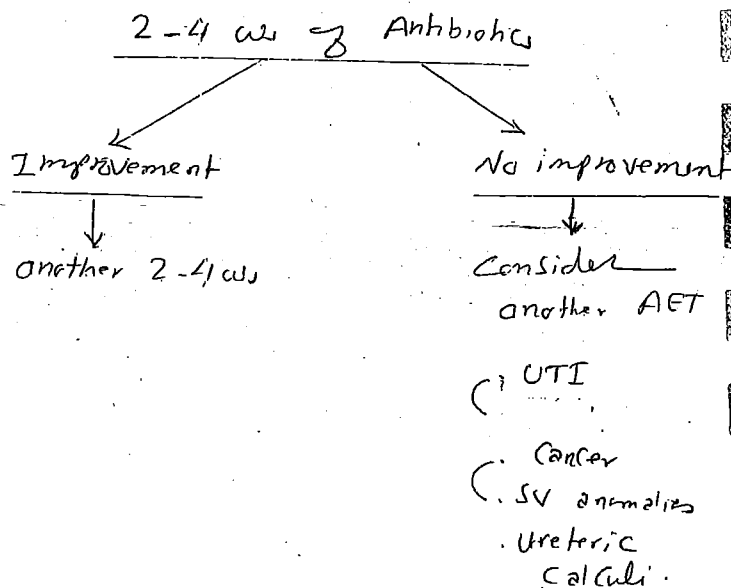 2-4 ws of Antibiotics
Improvement
No improvement
another 2-4 ws
Consider
another AET
UTI
. Cancer
. SV anomalies
. Ureteric
Calculi.